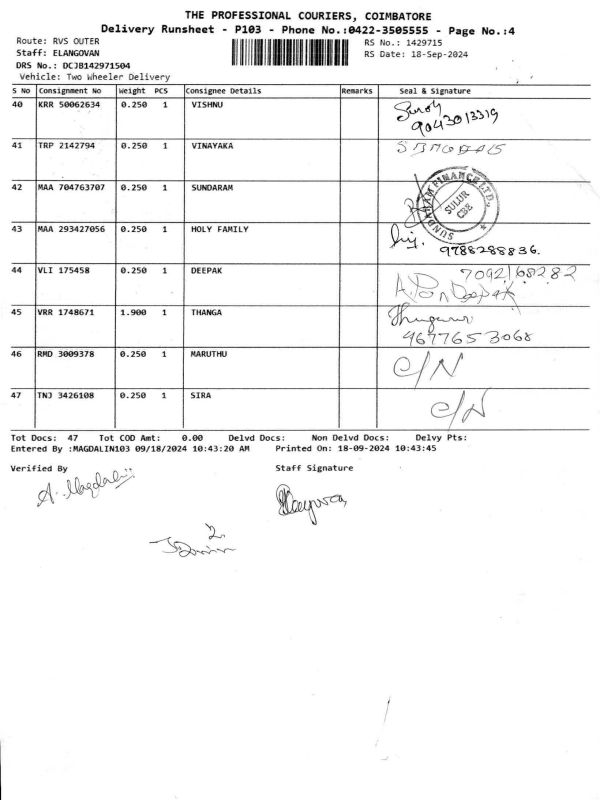 THE PROFESSIONAL COURIERS, COIMBATORE
Delivery Runsheet - P103 - Phone No.:0422-3505555 - Page No.:4
Route: RVS OUTER RS No.: 1429715
Staff: ELANGOVAN RS Date: 18-Sep-2024
DRS No.: DCJB142971504
Vehicle: Two Wheeler Delivery
S No Consignment No Weight PCS Consignee Details Remarks Seal & Signature
40 KRR 50062634 0.250 1 VISHNU
9043013319
41 TRP 2142794 0.250 1 VINAYAKA
42 MAA 704763707 0.250 1 SUNDARAM
SUNDARAM FINANCE LTD.,
SULUR
CBE
43 MAA 293427056 0.250 1 HOLY FAMILY
9788288836.
44 VLI 175458 0.250 1 DEEPAK
7092168282
A. Pon Deepak
45 VRR 1748671 1.900 1 THANGA
9677653068
46 RMD 3009378 0.250 1 MARUTHU
C/N
47 TNJ 3426108 0.250 1 SIRA
C/N
Tot Docs: 47 Tot COD Amt: 0.00 Delvd Docs: Non Delvd Docs: Delvy Pts:
Entered By :MAGDALIN103 09/18/2024 10:43:20 AM Printed On: 18-09-2024 10:43:45
Verified By Staff Signature
A. Magdalin